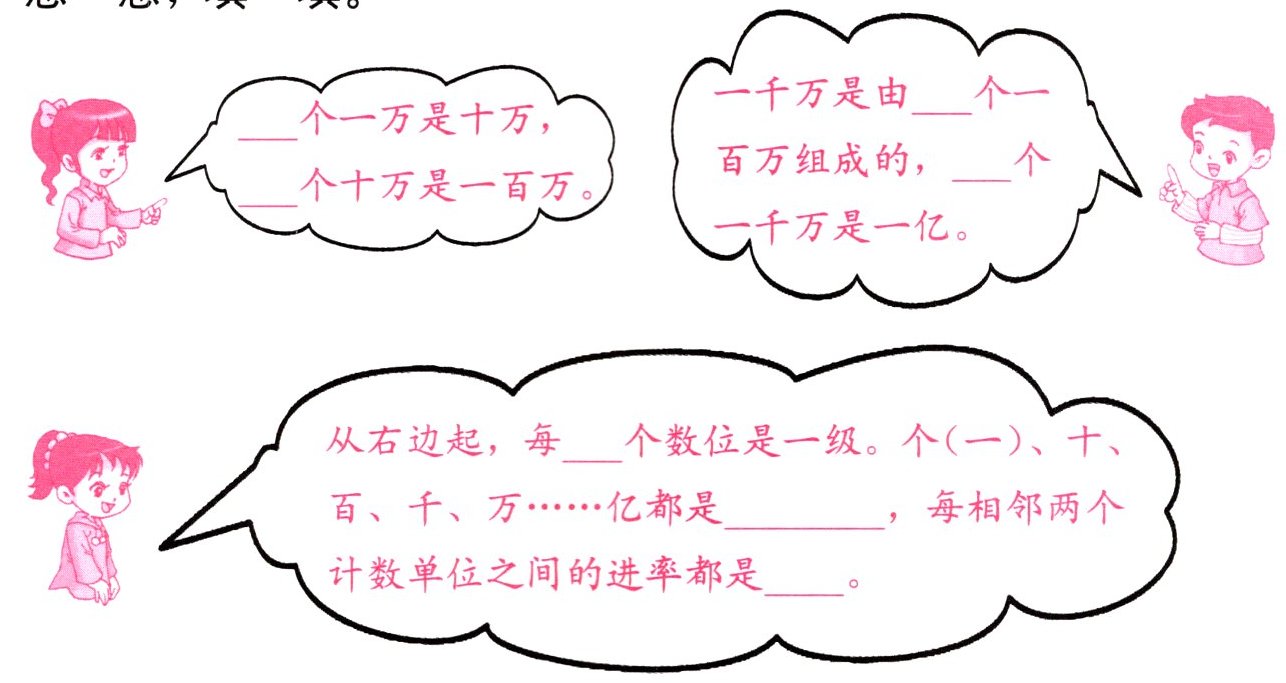 想一想，填一填。
___个一万是十万，
___个十万是一百万。
一千万是由___个一
百万组成的，___个
一千万是一亿。
从右边起，每___个数位是一级。个(一)、十、
百、千、万……亿都是________，每相邻两个
计数单位之间的进率都是____。